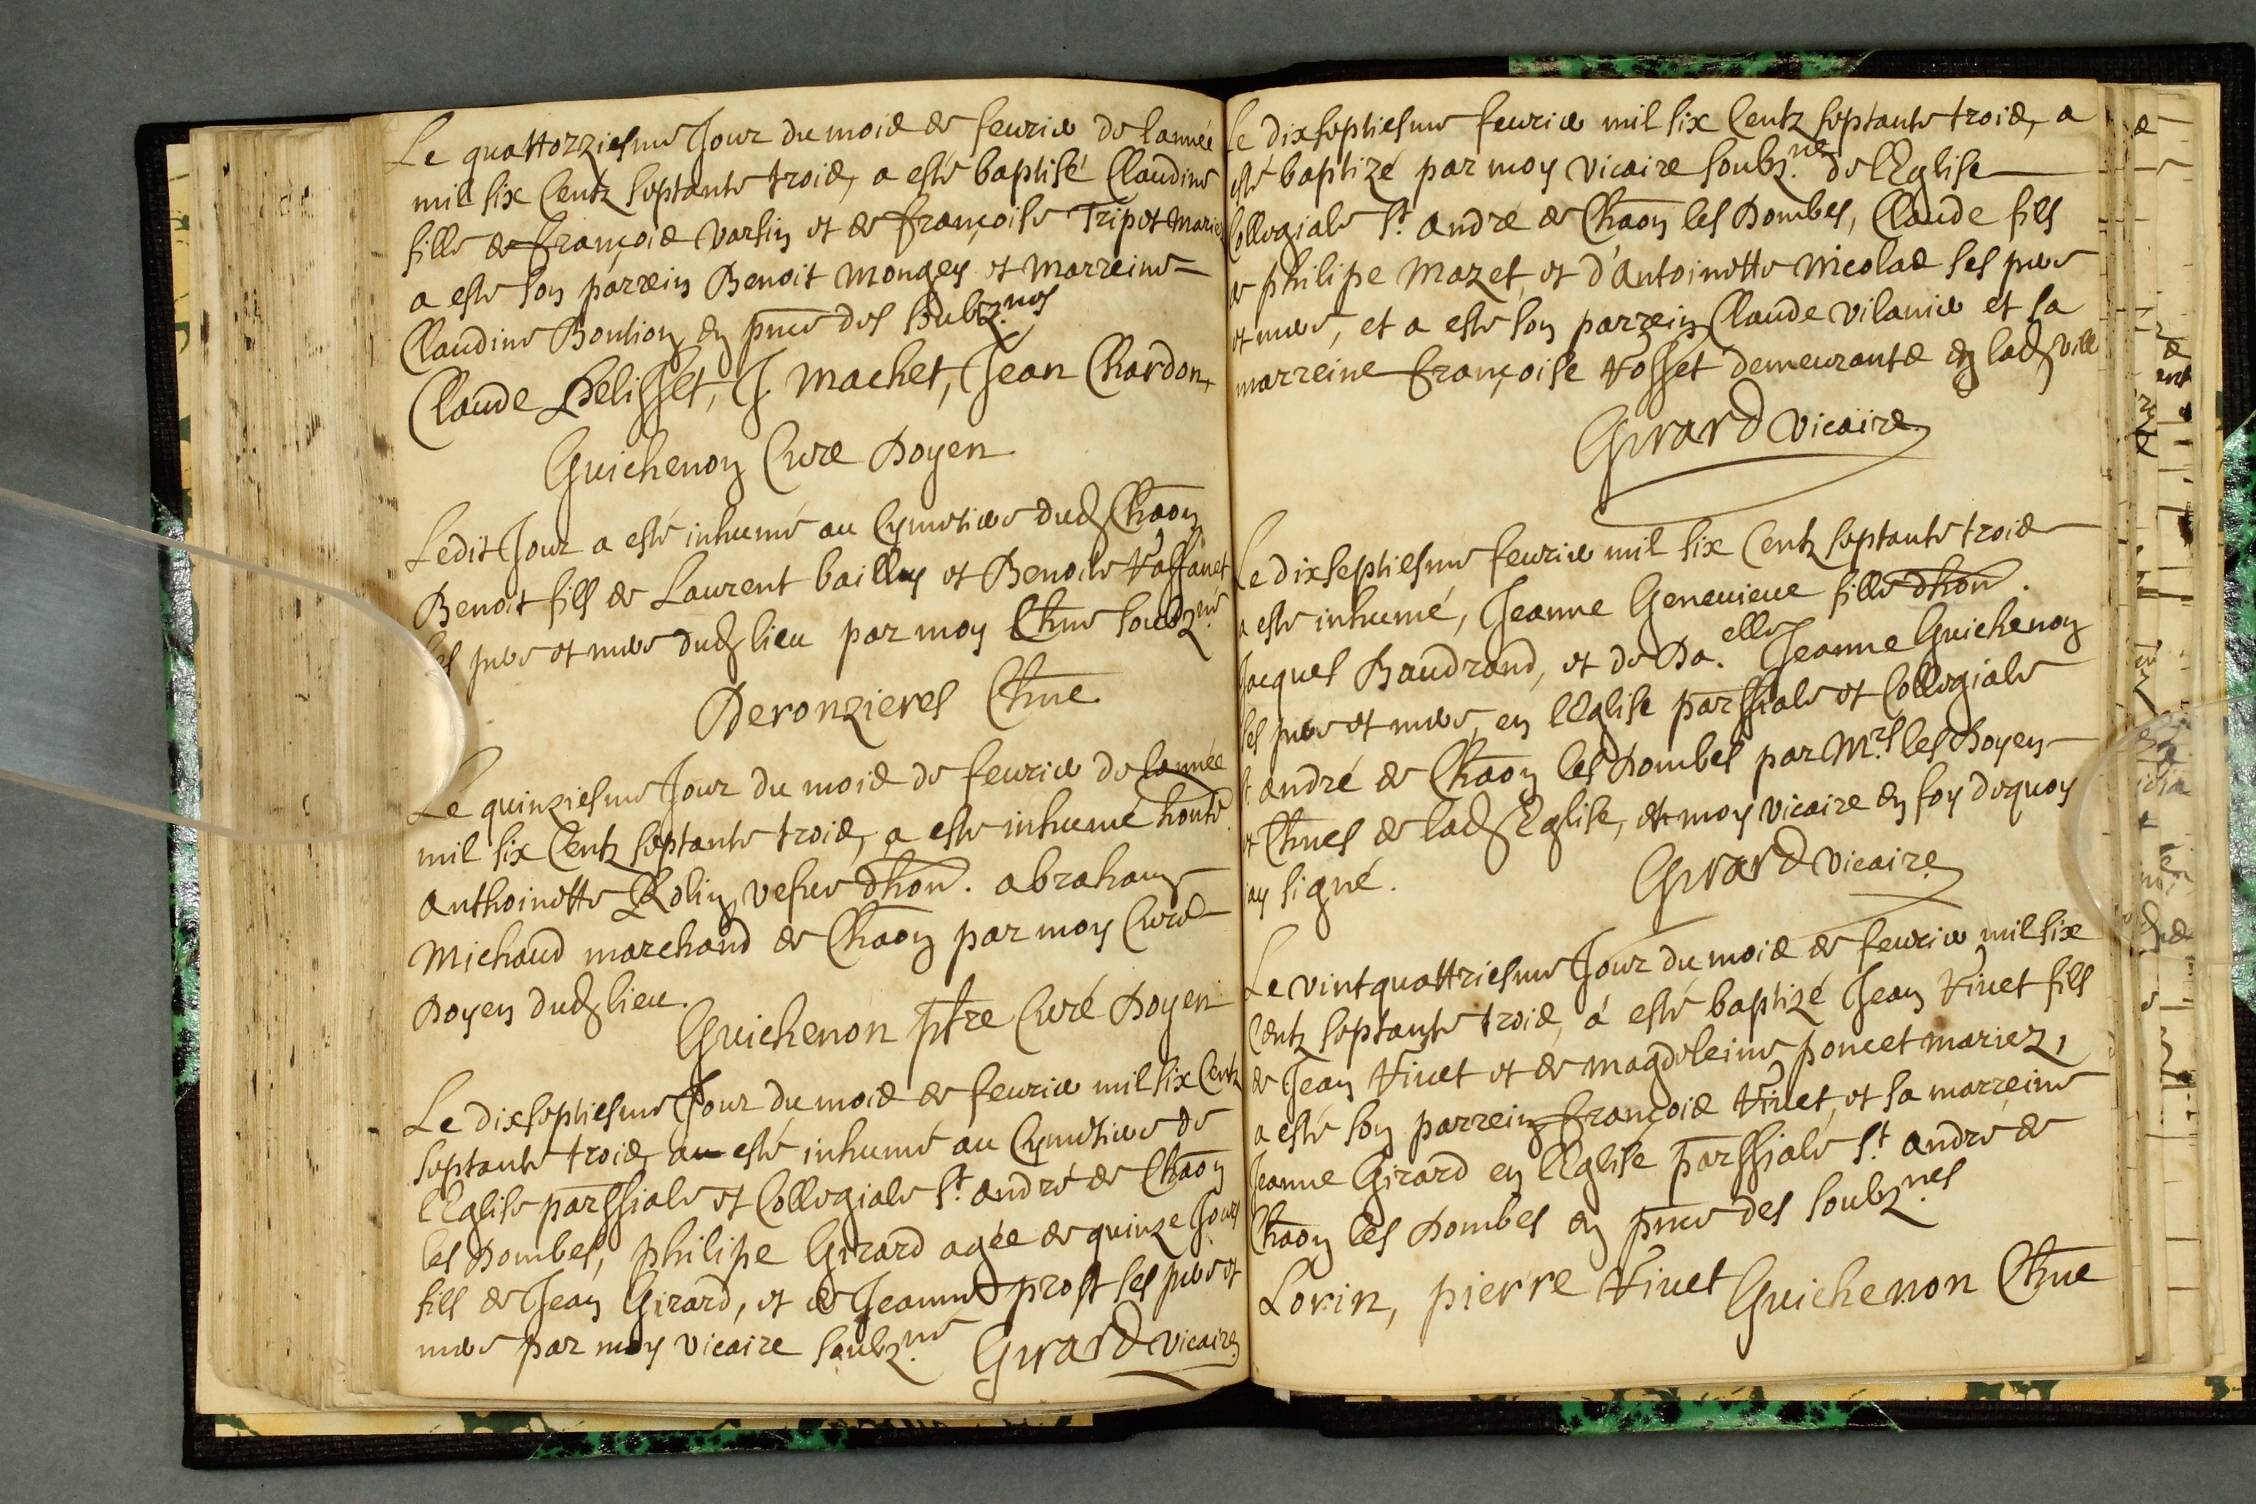 Le quattorziesme Jour du mois de feurier de lannée
mil six Centz septante trois, a esté baptisé Claudine
fille de françois varsin et de françoise Tripot Mariez
a esté son parrein Benoit mongey et marreine
Claudine Boulion en pnce des soubz.nes
Claude Delisset, J. Machet, Jean Chardon,
Guichenon Cure Doyen
Ledit Jour a esté inhumé au Cymetiere dud Chaon
Benoit fils de Laurent bailly et Benoite Vassauet
ses pere et mere dud lieu par moy Chne soubz.né
Deronzieres Chne
Le quinziesme Jour du mois de feurier de lannée
mil six Centz septante trois, a esté inhumé honte.
anthoinette Rolin vefue dhon. abraham
Michaud marchand de Chaon par moy Curé
Doyen dud lieu.
Guichenon ptre Curé Doyen
Le dixseptiesme Jour du mois de feurier mil six Centz
septante trois, a esté inhumé au Cymetiere de
lEglise parssiale et Collegiale St. andré de Chaon
les Dombes, philipe Girard agée de quinze Jours
fils de Jean Girard, et de Jeanne prost ses pere et
mere par moy vicaire soubz.né Girard vicaire
Le dixseptiesme feurier mil six Centz septante trois, a
esté baptizé par moy vicaire soubz.né de lEglise
Collegiale St. andré de Chaon les Dombes, Claude fils
de philipe Mazet, et d'Antoinette Nicolas ses pere
et mere, et a esté son parrein Claude vilanier et sa
marreine françoise Vosset demeurants en lad ville
Girard vicaire
Le dixseptiesme feurier mil six Centz septante trois
a esté inhumé, Jeanne Geneuieue fille dhon.
Jacques Baudrand, et de Da.elle Jeanne Guichenon
ses pere et mere, en lEglise parssiale et Collegiale
St. andré de Chaon les Dombes par Mrs. les Doyen
et Chnes de lad Eglise, et moy vicaire en foy dequoy
jay signé.
Girard vicaire
Le vintquattriesme Jour du mois de feurier mil six
Centz septante trois, a esté baptizé Jean Viuet fils
de Jean Viuet et de magdeleine poncet mariez,
a esté son parrein françois Viuet, et sa marreine
Jeanne Girard en lEglise parssiale St. andré de
Chaon les Dombes en pnce des soubz.nes
Lorin, pierre Viuet Guichenon Chne